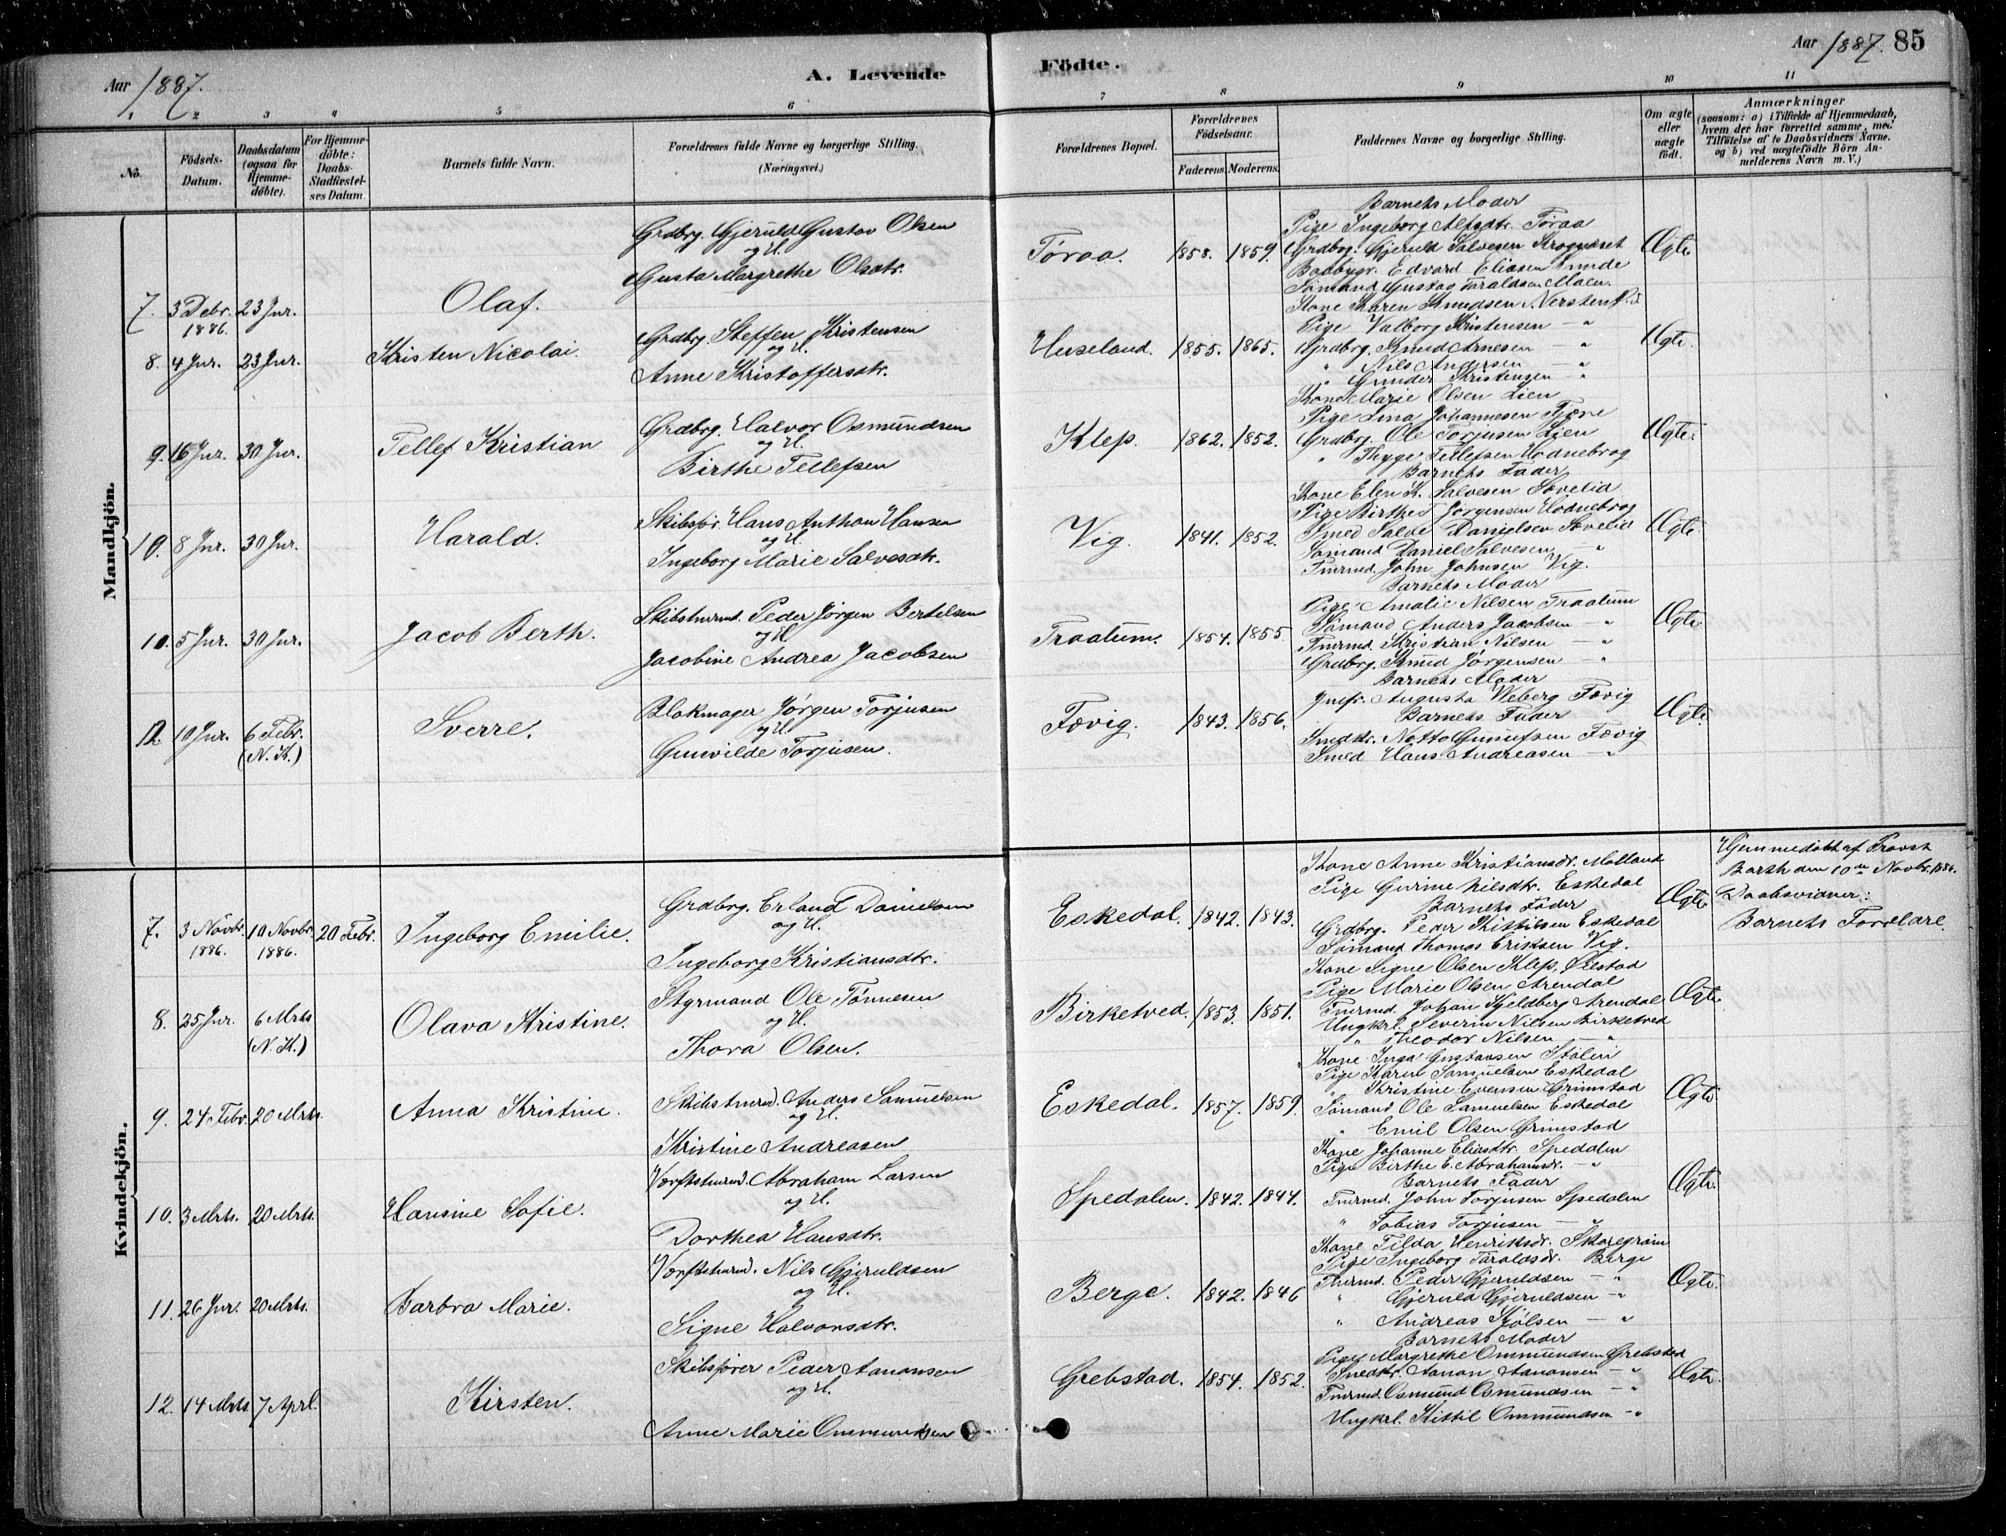 Aar 1887.
A. Levende
Födte.
Aar 1887. 85
1 2 3 4 5 6 7 8 9 10 11
No.
Födsels-Datum.
Daabsdatum (ogsaa for Hjemme-döbte).
For Hjemme-döbte: Daabs-Stadfæstel-ses Datum.
Barnets fulde Navn.
Forældrenes fulde Navne og borgerlige Stilling. (Næringsvei.)
Forældrenes Bopæl.
Forældrenes Födselsaar.
Faderens. Moderens.
Faddernes Navne og borgerlige Stilling.
Om ægte eller uægte födt.
Anmærkninger
(saasom: a) i Tilfælde af Hjemmedaab, hvem der har forrettet samme, med Tilföielse af to Daabsvidners Navne. og b) ved uægtefödte Börn An-melderens Navn m. V.)
Mandkjön.
7. 3 Debr. 1886. 23 Jnr. Olaf.
Grdbrg. Gjeruld Gustav Olsen
og H.
Gusta Margrethe Olsdtr.
Töraa. 1858. 1859.
Barnets Moder
Pige Ingeborg Alfsdtr. Töraa
Grdbrg. Gjeruld Salvesen Krognæset
Baadbygr. Edvard Eliasen Smide
Sömand Gustag Taraldsen Moen.
Ægte.
8. 4 Jnr. 23 Jnr. Kristen Nicolai.
Grdbrg. Steffen Kristensen
og H.
Anne Kristoffersdtr.
Huseland. 1855. 1865.
Kone Karen Knudsen Nersten
Pige Valborg Kristensen — "
Grdbrg. Knud Arnesen — "
" Nils Andersen — "
" Gunder Kristensen — "
Ægte.
9. 16 Jnr. 30 Jnr. Tellef Kristian
Grdbrg. Halvor Osmundsen
og H.
Birthe Tellefsen
Klep. 1862. 1852.
Kone Marie Olsen Lien
Pige Lina Johannesen Fjære
Grdbrg. Ole Torjusen Lien
" Thyge Tellefsen Hodnebrog
Barnets Fader
Ægte.
10. 8 Jnr. 30 Jnr. Harald.
Skibsför. Hans Anthon Hansen
og H.
Ingeborg Marie Salvesdtr.
Vig. 1841. 1852.
Kone Elen K. Salvesen Sævelid
Pige Birthe Jörgensen Hodnebrog
Smed Salve Danielsen Sævelid
Sömand Daniel Salvesen — "
Tmrmd. John Johnsen Vig.
Ægte.
10. 5 Jnr. 30 Jnr. Jacob Berth.
Skibstmrmd. Peder Jörgen Bertelsen
og H.
Jacobine Andrea Jacobsen
Traatum. 1854. 1855.
Barnets Moder
Pige Amalie Nilsen Traatum
Sömand Anders Jacobsen — "
Tmrmd. Kristian Nilsen — "
Grdbrg. Knud Jörgensen — "
Ægte.
12 10 Jnr. 6 Febr. (N.K.) Sverre.
Blokmager Jörgen Torjusen
og H.
Gunvilde Torjusen.
Fævig. 1843. 1856.
Barnets Moder
Jmfr. Augusta Weberg Fævig
Barnets Fader
Smedkr. Notto Gunufsen Fævig
Smed Hans Andreasen — "
Ægte.
Kvindekjön.
7. 3 Novbr. 1886. 10 Novbr. 1886. 20 Febr. Ingeborg Emilie.
Grdbrg. Erland Danielsen
og H.
Ingeborg Kristiansdtr.
Eskedal. 1842. 1843.
Kone Anne Kristiansdr. Molland
Pige Gurine Nilsdtr. Eskedal
Barnets Fader
Grdbrg. Peder Kittilsen Eskedal
Sömand Thomas Eriksen Vig.
Ægte.
Hjemmedöbt af Provst
Barth den 10de Novbr. 1886.
Daabsvidner:
Barnets Forældre.
8. 25 Jnr. 6 Mrts (N.K.) Olava Kristine.
Styrmand Ole Tönnesen
og H.
Thora Olsen.
Birketved. 1853. 1851.
Kone Signe Olsen Klep,
Pige Marie Olsen Arendal
Tmrmd. Johan Kjeldberg Arendal
Ungkrl. Severin Nilsen Birketved
" Theodor Nilsen — "
Ægte.
9. 24 Febr. 20 Mrts. Anna Kristine.
Skibstmrmd. Anders Samuelsen
og H.
Kristine Andreasen
Eskedal. 1857. 1859.
Kone Inga Gustavsen Stölen
Pige Karen Samuelsen Eskedal
" Kristine Evensen Grimstad
Sömand Ole Samuelsen Eskedal
" Emil Olsen Grimstad
Ægte.
10. 3 Mrts. 20 Mrts. Hansine Sofie.
Værftstmrmd. Abraham Larsen
og H.
Dorthea Hansdtr.
Spedalen. 1842. 1844.
Kone Johanne Eliasdtr. Spedalen
Pige Birthe E. Abrahamsdr. — "
Barnets Fader
Tmrmd. John Torjusen Spedalen
" Tobias Torjusen — "
Ægte.
11. 26 Jnr. 20 Mrts. Barbra Marie.
Værftstmrmd. Nils Gjeruldsen
og H.
Signe Halvorsdtr.
Berge. 1842. 1846
Kone Tilda Henriksdr. Skaregröm
Pige Ingeborg Taraldsdr. Berge
Tmrmd. Peder Gjeruldsen — "
" Gjeruld Gjeruldsen — "
" Andreas Kjölsen — "
Ægte.
12. 14 Mrts 7 Aprl. Kirsten.
Skibsfører Peder Aanonsen
og H.
Anne Marie Ommundsen
Grebstad. 1854. 1852.
Barnets Moder
Pige Margrethe Ommundsen Grebstad
Snedkr. Aanon Aanonsen — "
Tmrmd. Osmund Osmundsen — "
Ungkrl. Kittil Ommundsen — "
Ægte.